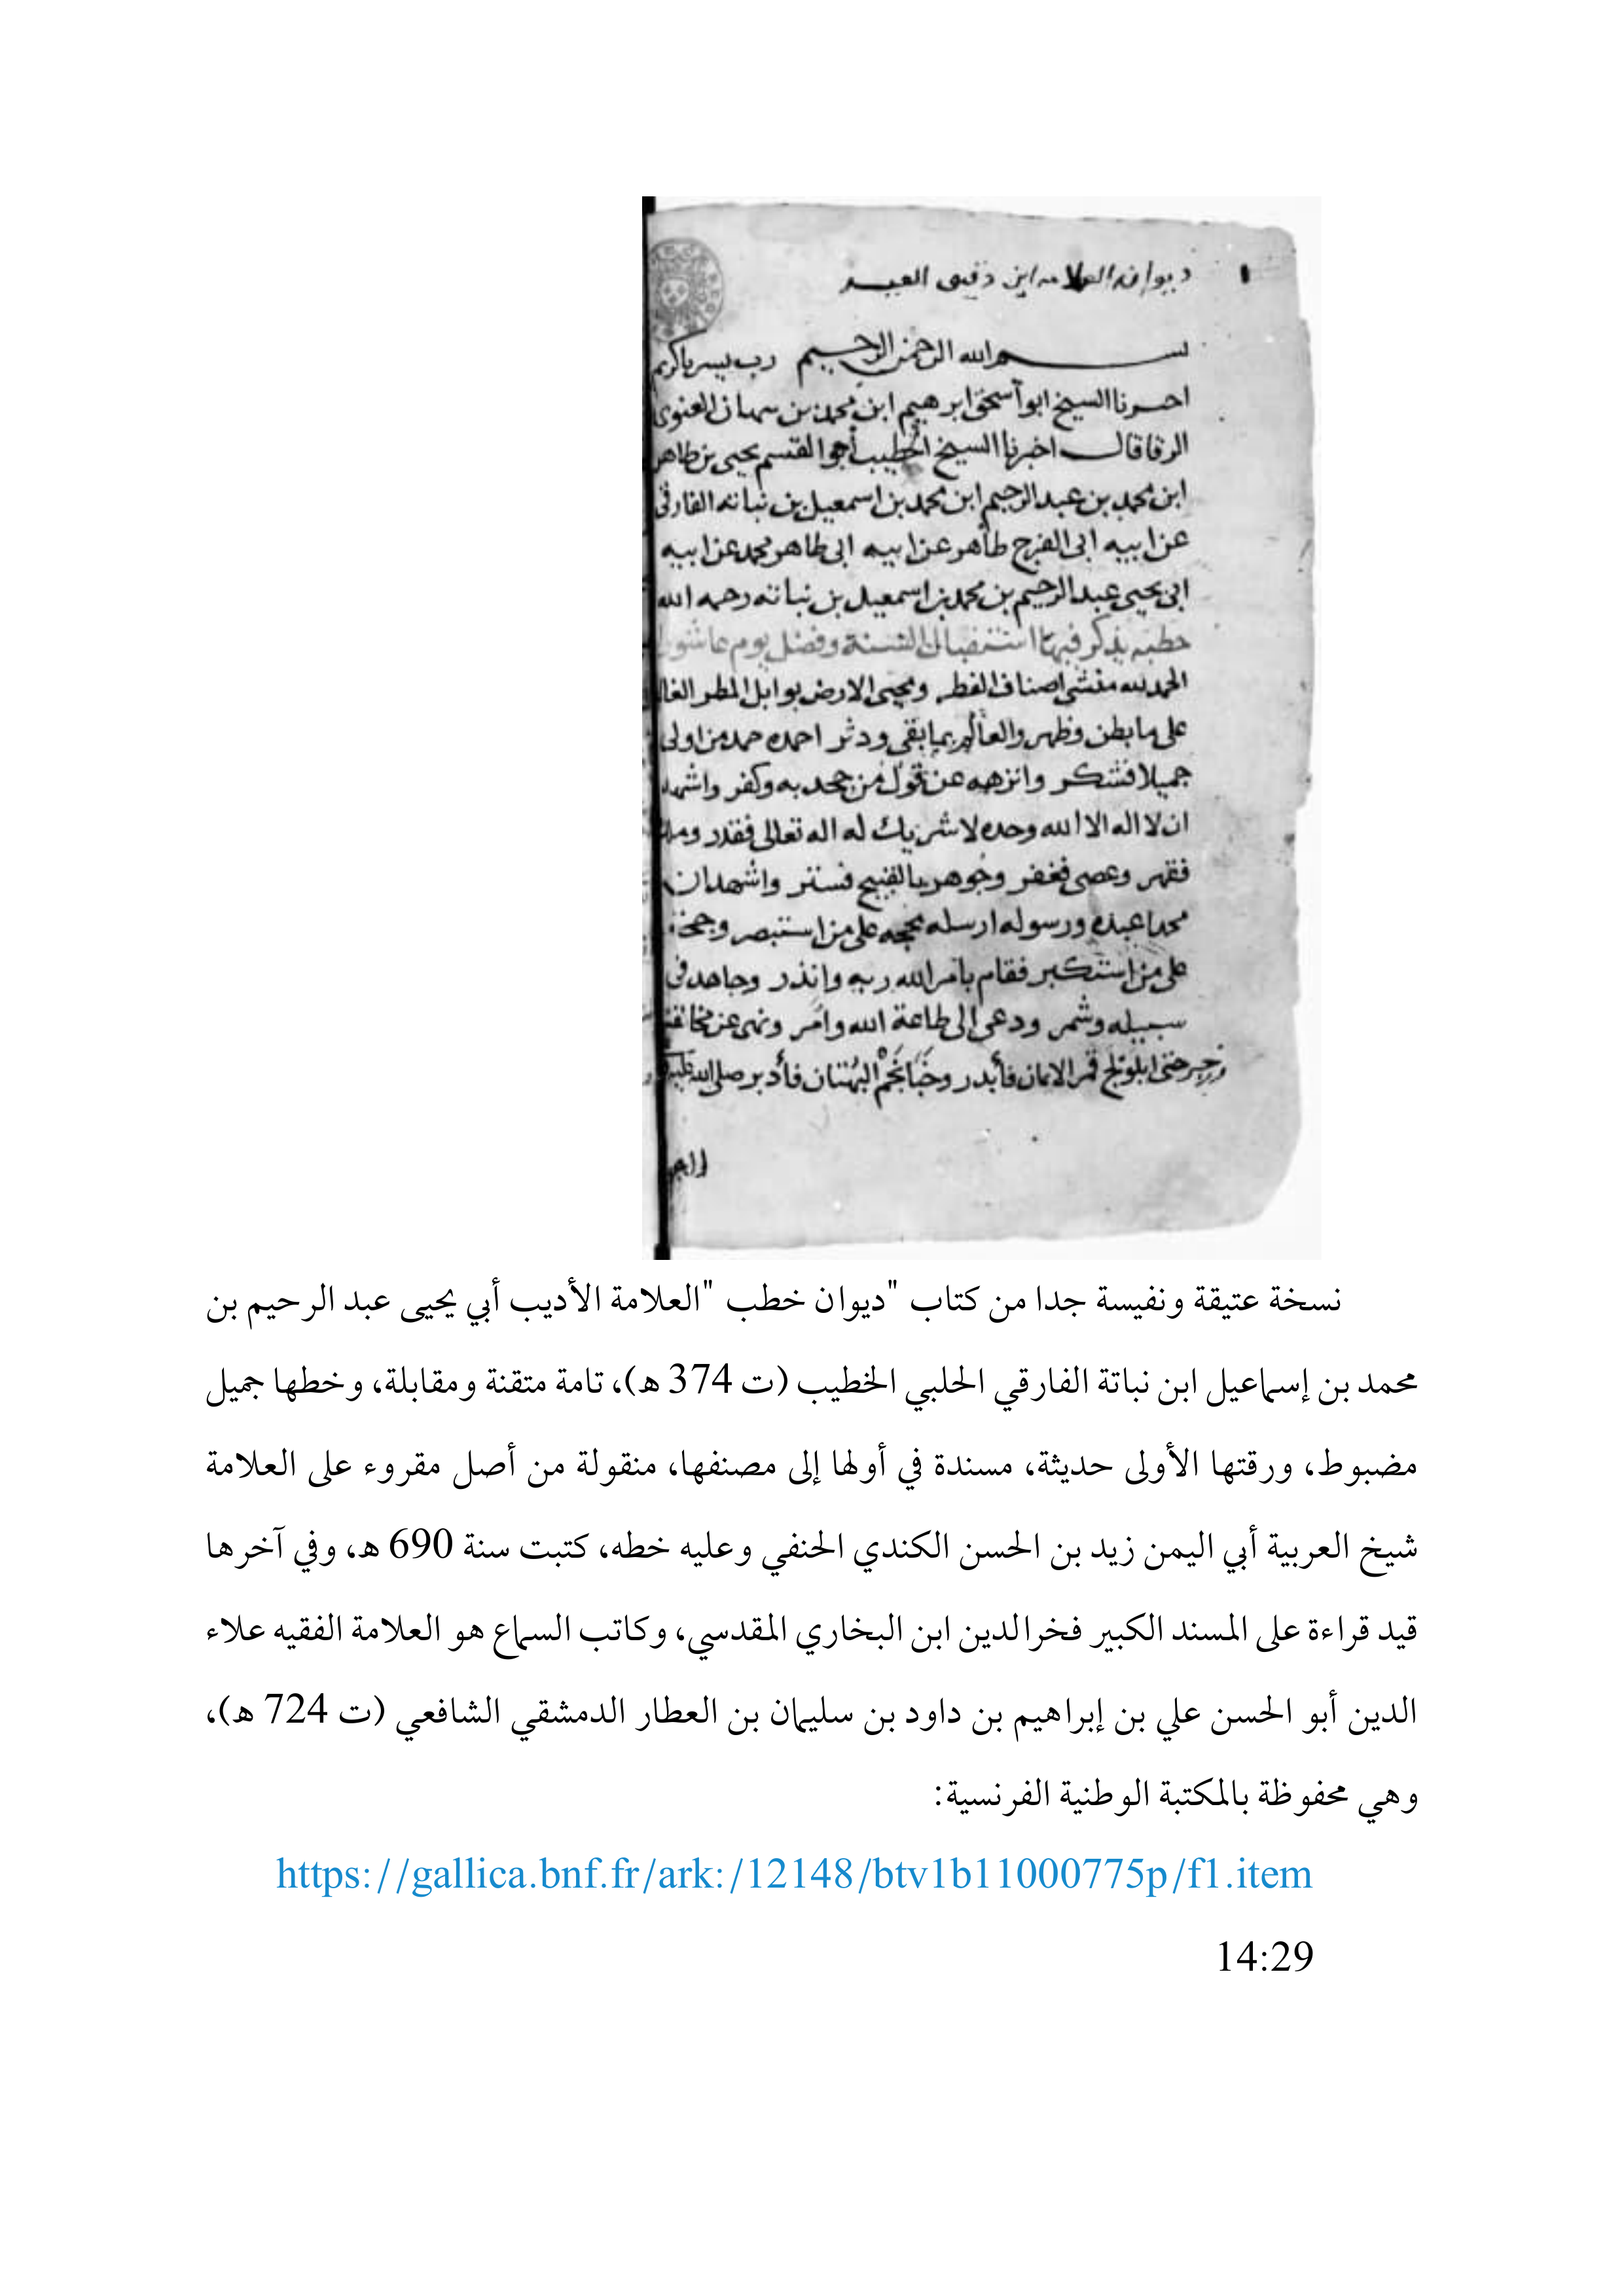 ديوان العلامه ابن دقيق العيد
بسم الله الرحمن الرحيم رب يسر ياكريم
اخبرنا الشيخ ابو اسحق ابرهيم ابن محمد بن نبهان الغنوى
الرقا قال اخبرنا الشيخ الخطيب ابو القسم يحيى بن طاهر
ابن محمد بن عبد الرحيم ابن محمد بن اسمعيل بن نباته الفارقى
عن ابيه ابى الفرج طاهر عن ابيه ابى طاهر محمد عن ابيه
ابى يحيى عبد الرحيم بن محمد بن اسمعيل بن نباته رحمه الله
خطبه يذكر فيها استقبال السنة وفضل يوم عاشورا
الحمد لله منشى اصناف الفطر ومحيى الارض بوابل المطر
على ما بطن وظهر والعالم بما بقى ودثر احمده حمد من اولى
جميلا فشكر وانزهه عن قول من جحد به وكفر واشهد
ان لا اله الا الله وحده لا شريك له اله تعالى فقدر وملك
فقهر وعصى فغفر وجوهر بالقبيح فستر واشهد ان
محمدا عبده ورسوله ارسله حجه على من استبصر
على من استكبر فقام بامر الله ربه وانذر وجاهد فى
سبيله وشمر ودعى الى طاعة الله وامر ونهى عن
وزجر حتى قمر الايمان فأبدر وخبا نجم البهتان فأدبر صلى الله عليه
نسخة عتيقة ونفيسة جدا من كتاب "ديوان خطب "العلامة الأديب أبي يحيى عبد الرحيم بن
محمد بن إسماعيل ابن نباتة الفارقي الحلبي الخطيب (ت 374 ه)، تامة متقنة ومقابلة، وخطها جميل
مضبوط، ورقتها الأولى حديثة، مسندة في أولها إلى مصنفها، منقولة من أصل مقروء على العلامة
شيخ العربية أبي اليمن زيد بن الحسن الكندي الحنفي وعليه خطه، كتبت سنة 690 ه، وفي آخرها
قيد قراءة على المسند الكبير فخرالدين ابن البخاري المقدسي، وكاتب السماع هو العلامة الفقيه علاء
الدين أبو الحسن علي بن إبراهيم بن داود بن سليمان بن العطار الدمشقي الشافعي (ت 724 ه)،
وهي محفوظة بالمكتبة الوطنية الفرنسية:
https://gallica.bnf.fr/ark:/12148/btv1b11000775p/f1.item
14:29